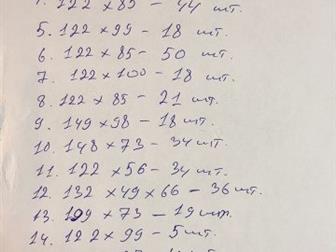 122 × 85 – 44 шт.
5. 122 × 99 – 18 шт.
6. 122 × 85 – 50 шт.
7. 122 × 100 – 18 шт.
8. 122 × 85 – 21 шт.
9. 149 × 98 – 18 шт.
10. 148 × 73 – 34 шт.
11. 122 × 56 – 34 шт.
12. 132 × 49 × 66 – 36 шт.
13. 199 × 73 – 19 шт.
14. 122 × 99 – 5 шт.